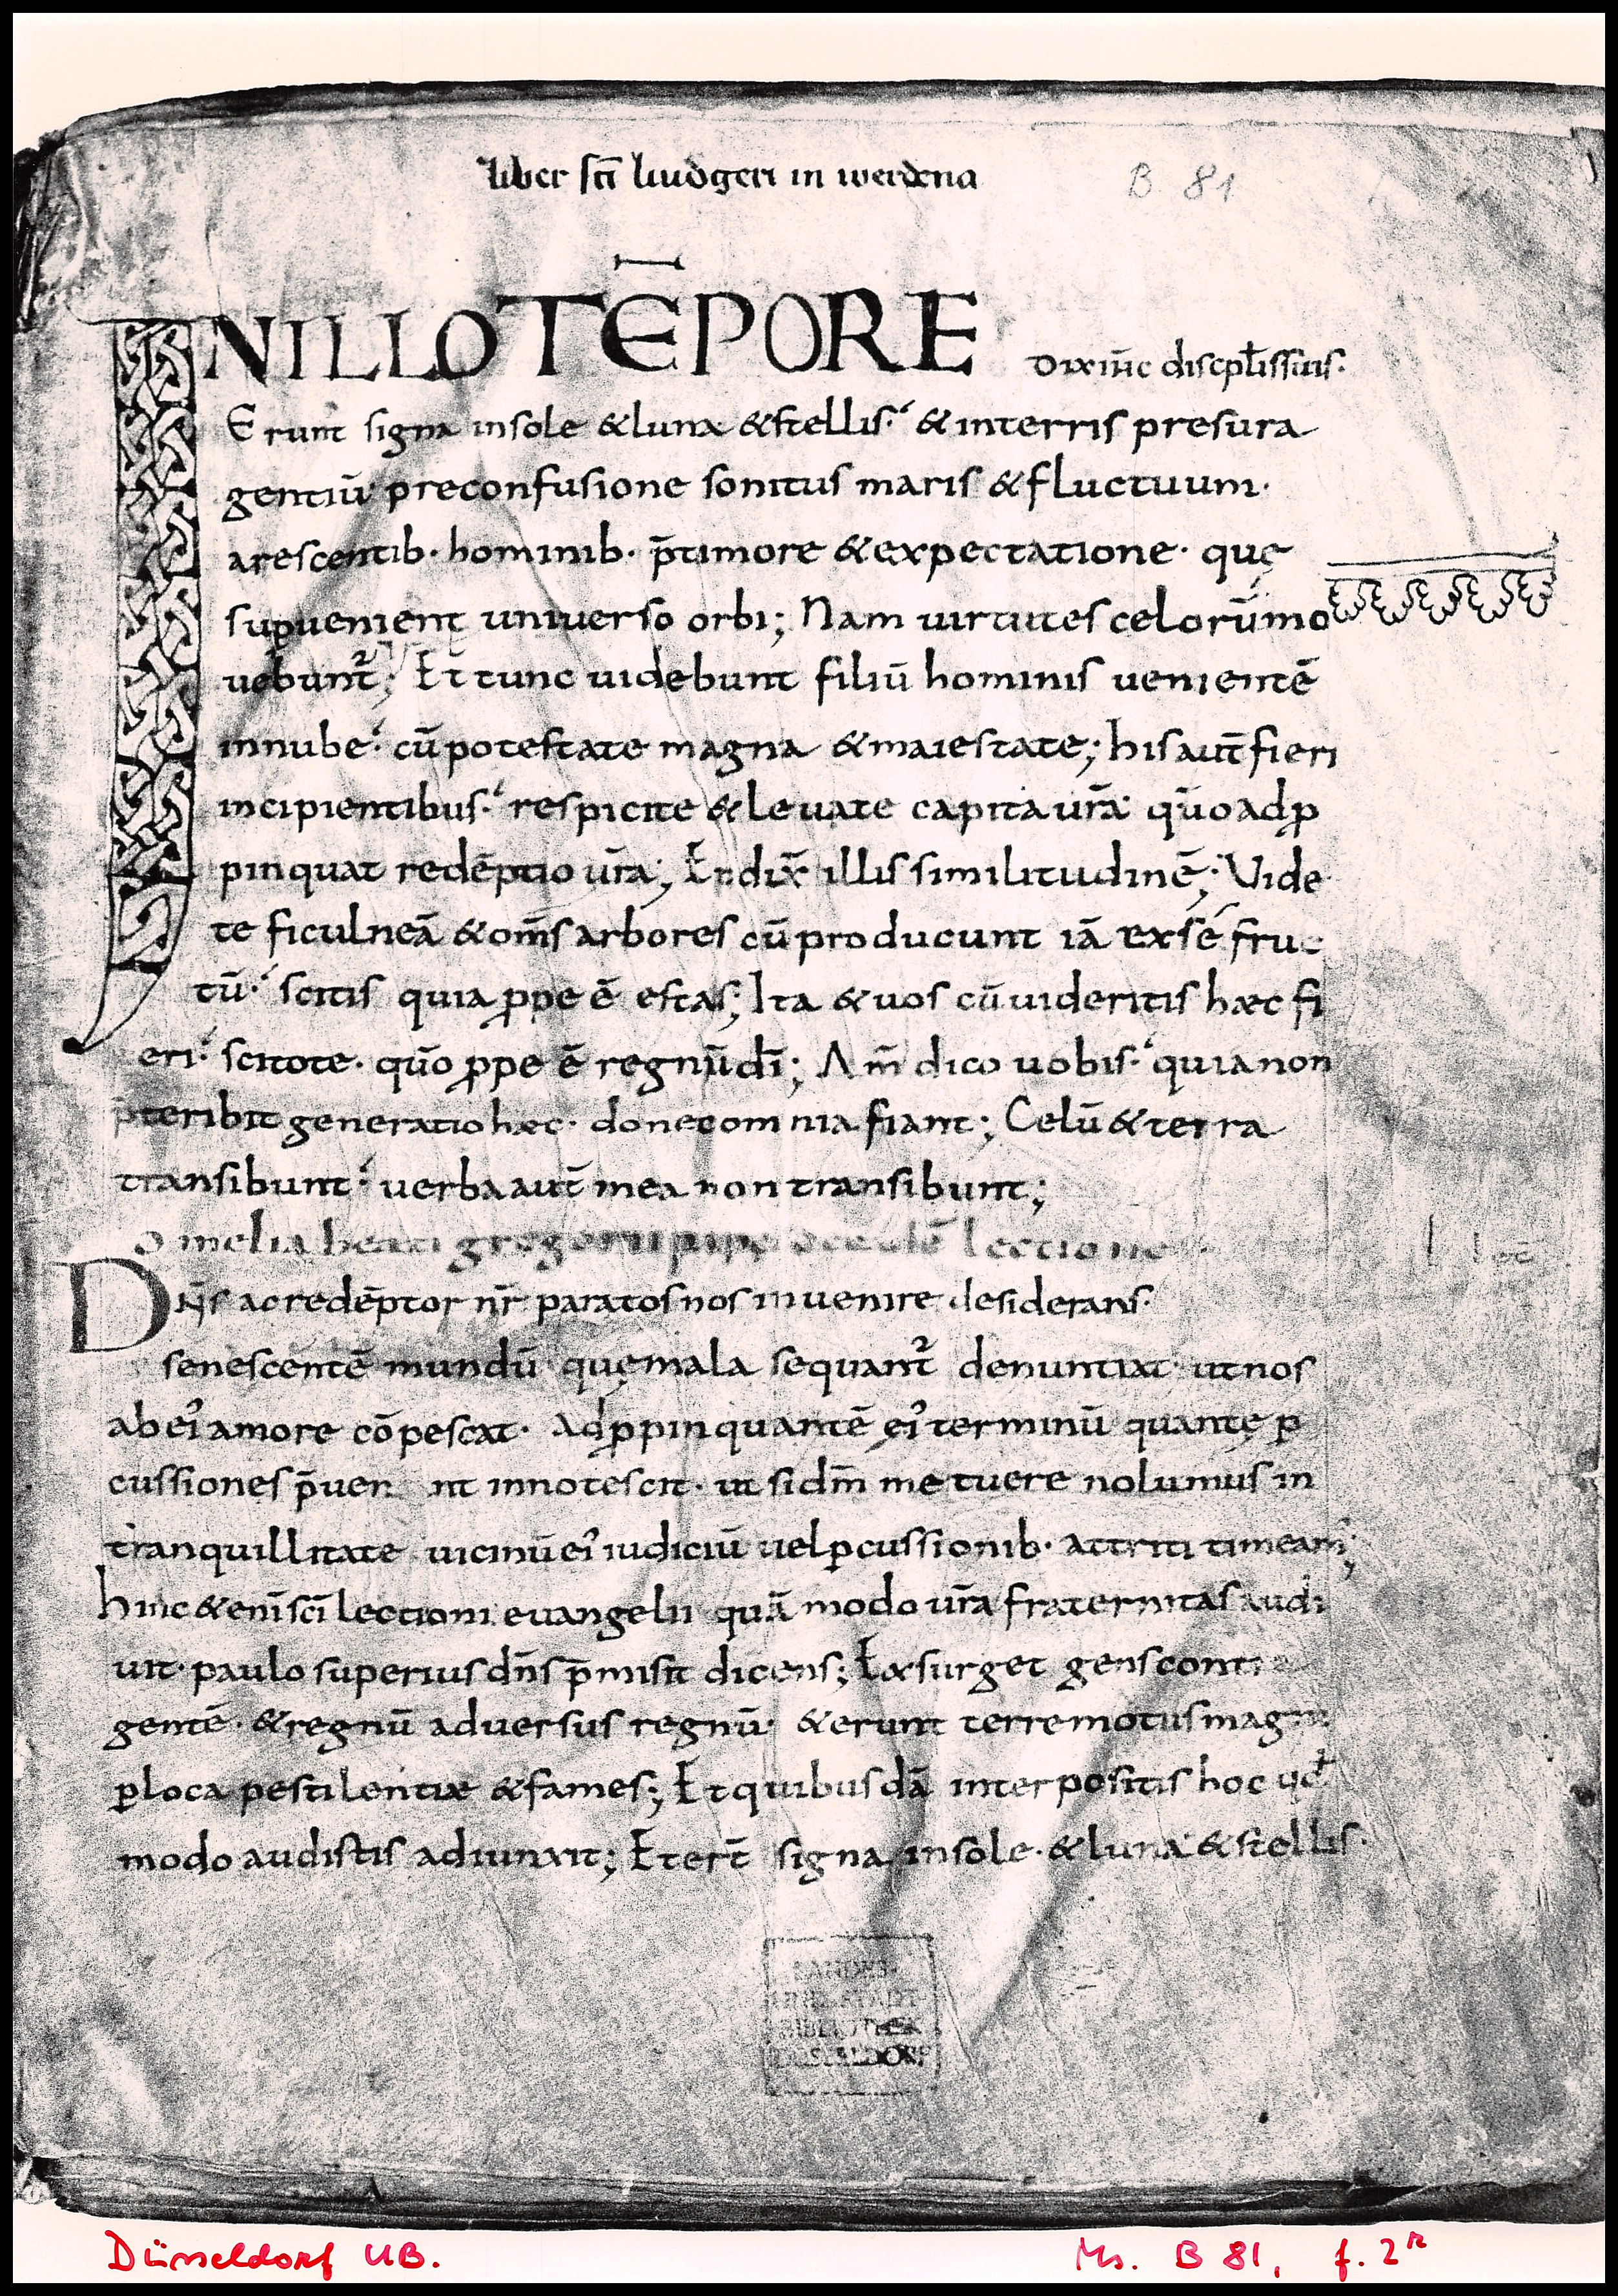 liber sc̄i liudgeri in werdena
B 81
INILLOTE̅PORE dix iħc discipl̄is suis·
Erunt signa insole &luna &stellis·́ & interris presura
gentiū preconfusione sonitus maris &fluctuum·
arescentib· hominib· p̄timore &expectatione· quę
supuenient universo orbi; Nam uirtutes celorūmo
uebunt᷑; Et tunc uidebunt filiū hominis uenientē
innube·́ cū potestate magna &maiestate; his aut̄ fieri
incipientibus·́ respicite &leuate capita ur̄a· qūo adꝓ
pinquat redēptio ur̄a; Et dix̄ illis similitudinē; Uide
te ficulneā &om̄s arbores cū producunt iā ex sé fruc
tū·́ scitis quia ꝓpe ē estas; Ita &uos cū uideritis hæc fi
eri·́ scitote· qūo ꝓpe ē regnū dī; Am̄ dico uobis·́ quia non
p̄teribit generatio hæc· donec omnia fiant; Celū &terra
transibunt·́ uerba aut̄ mea non transibunt;
Omelia beati gregorii pape de eadē lectione
Dn̄s ac redēptor nr̄ paratos nos inuenire desiderans·
senescentē mundū quę mala sequant᷑ denuntiat· ut nos
ab ei᾿ amore cōpescat· Adꝓpinquantē ei᾿ terminū quantę ꝑ
cussiones p̄uen nt innotescit· ut si dm̄ metuere nolumus in
tranquillitate uicinū ei᾿ iudiciū uel ꝑcussionib· attriti timeam᾿;
hinc &enī sc̄i lectioni euangelii quā modo ur̄a fraternitas audi
uit· paulo superius dn̄s p̄misit dicens; Exsurget gens contra
gentē· &regnū aduersus regnū· &erunt terremotus magni
ꝑloca pestilentiæ &fames; Et quibusdā interpositis hoc qđ
modo audistis adiunxit; Et er̄t signa insole· &luna &stellis·
LANDES-
UND STADT-
BIBLIOTHEK
DÜSSELDORF
Düsseldorf UB. Ms. B 81, f. 2ʳ